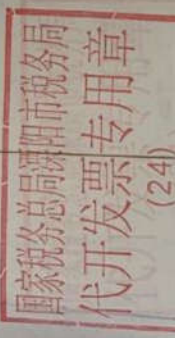 国家税务总局溧阳市税务局
代开发票专用章
(24)